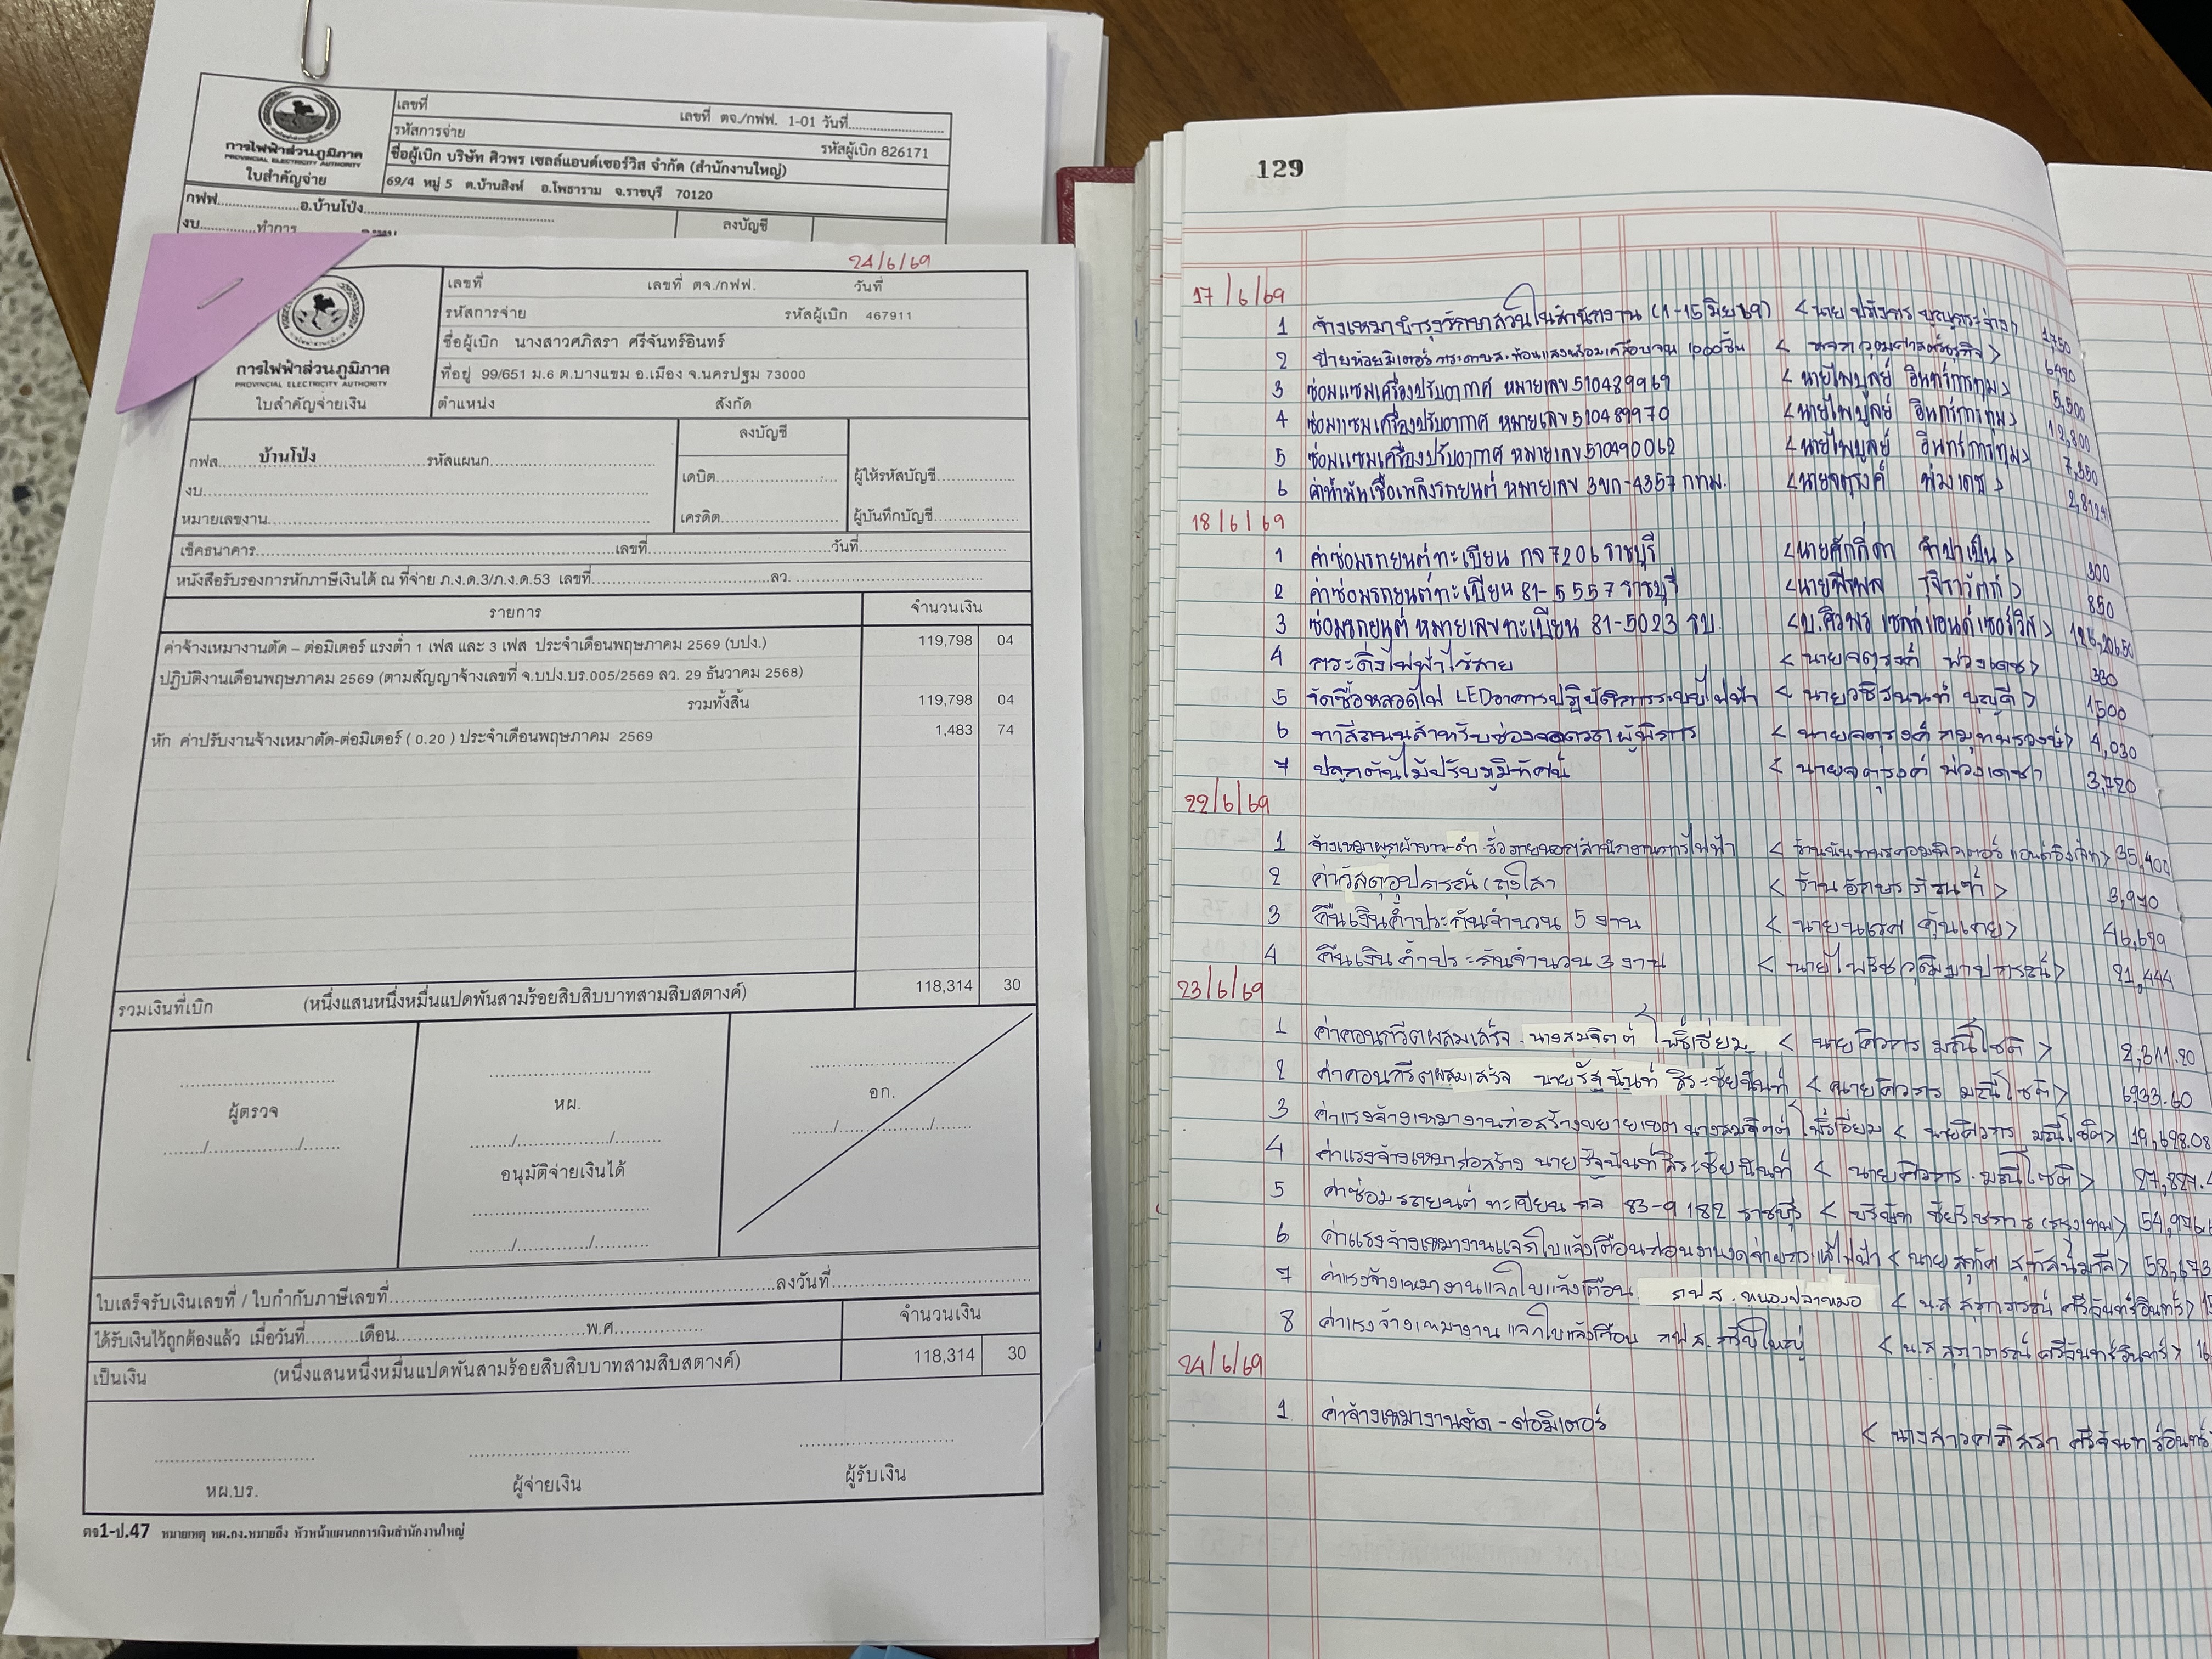 เลขที่ เลขที่ ตจ./กฟฟ. 1-01 วันที่
รหัสการจ่าย รหัสผู้เบิก 826171
ชื่อผู้เบิก บริษัท ศิวพร เซลล์แอนด์เซอร์วิส จำกัด (สำนักงานใหญ่)
69/4 หมู่ 5 ต.บ้านสิงห์ อ.โพธาราม จ.ราชบุรี 70120
การไฟฟ้าส่วนภูมิภาค
PROVINCIAL ELECTRICITY AUTHORITY
ใบสำคัญจ่าย
กฟฟ. อ.บ้านโป่ง
งบ ทำการ ลงบัญชี
24/6/69
เลขที่ เลขที่ ตจ./กฟฟ. วันที่
รหัสการจ่าย รหัสผู้เบิก 467911
ชื่อผู้เบิก นางสาวศภิสรา ศรีจันทร์อินทร์
ที่อยู่ 99/651 ม.6 ต.บางแขม อ.เมือง จ.นครปฐม 73000
ตำแหน่ง สังกัด
การไฟฟ้าส่วนภูมิภาค
PROVINCIAL ELECTRICITY AUTHORITY
ใบสำคัญจ่ายเงิน
ลงบัญชี
กฟส. บ้านโป่ง รหัสแผนก เดบิต ผู้ให้รหัสบัญชี
งบ
หมายเลขงาน เครดิต ผู้บันทึกบัญชี
เช็คธนาคาร เลขที่ วันที่
หนังสือรับรองการหักภาษีเงินได้ ณ ที่จ่าย ภ.ง.ด.3/ภ.ง.ด.53 เลขที่ ลว.
รายการ จำนวนเงิน
ค่าจ้างเหมางานตัด – ต่อมิเตอร์ แรงต่ำ 1 เฟส และ 3 เฟส ประจำเดือนพฤษภาคม 2569 (บปง.) 119,798 04
ปฏิบัติงานเดือนพฤษภาคม 2569 (ตามสัญญาจ้างเลขที่ จ.บปง.บร.005/2569 ลว. 29 ธันวาคม 2568)
รวมทั้งสิ้น 119,798 04
หัก ค่าปรับงานจ้างเหมาตัด-ต่อมิเตอร์ ( 0.20 ) ประจำเดือนพฤษภาคม 2569 1,483 74
รวมเงินที่เบิก (หนึ่งแสนหนึ่งหมื่นแปดพันสามร้อยสิบสิบบาทสามสิบสตางค์) 118,314 30
ผู้ตรวจ หผ. อก.
อนุมัติจ่ายเงินได้
ใบเสร็จรับเงินเลขที่ / ใบกำกับภาษีเลขที่ ลงวันที่
ได้รับเงินไว้ถูกต้องแล้ว เมื่อวันที่ เดือน พ.ศ. จำนวนเงิน
เป็นเงิน (หนึ่งแสนหนึ่งหมื่นแปดพันสามร้อยสิบสิบบาทสามสิบสตางค์) 118,314 30
หผ.บร. ผู้จ่ายเงิน ผู้รับเงิน
ตจ1-ป.47 หมายเหตุ หผ.กง.หมายถึง หัวหน้าแผนกการเงินสำนักงานใหญ่
129
17/6/69
1 จ้างเหมาบำรุงรักษาสวนในสำนักงาน (1-15 มิย 69) 1750
2 ป้ายห้อยมิเตอร์ 1000 ชิ้น 6420
3 ซ่อมแซมเครื่องปรับอากาศ หมายเลข 510489969 <นายไพบูลย์ อินทร์การทุม> 5,500
4 ซ่อมแซมเครื่องปรับอากาศ หมายเลข 510489970 <นายไพบูลย์ อินทร์การทุม> 12,800
5 ซ่อมแซมเครื่องปรับอากาศ หมายเลข 510490062 <นายไพบูลย์ อินทร์การทุม> 7,350
6 ค่าน้ำมันเชื้อเพลิงรถยนต์ หมายเลข 3ขก-4357 กทม. <นายจตุรงค์ พ่วงเดช>
18/6/69
1 ค่าซ่อมรถยนต์ทะเบียน กจ 7206 ราชบุรี <นายศักดิ์ดา จำปาเป็น> 300
2 ค่าซ่อมรถยนต์ทะเบียน 81-5557 ราชบุรี <นายพีรพล รุจิราวัตถ์> 850
3 ซ่อมรถยนต์ หมายเลขทะเบียน 81-5023 รบ. <บ.ศิวพร เซลล์แอนด์เซอร์วิส>
4 กระดิ่งไฟฟ้าไร้สาย <นายจตุรงค์ พ่วงเดช> 330
5 จัดซื้อหลอดไฟ LED อาคารปฏิบัติการระบบไฟฟ้า 1500
6 ทาสีถนนสำหรับช่องจอดรถผู้พิการ 4,030
7 ปลูกต้นไม้ปรับภูมิทัศน์ <นายจตุรงค์ พ่วงเดช> 3,720
22/6/69
1 จ้างเหมาผูกผ้าขาว-ดำ รั้วภายนอกสำนักงานการไฟฟ้า 35,400
2 ค่าวัสดุอุปกรณ์ 3,970
3 คืนเงินค้ำประกันจำนวน 5 งาน 46,629
4 คืนเงินค้ำประกันจำนวน 3 งาน 21,444
23/6/69
1 ค่าคอนกรีตผสมเสร็จ นางสมจิตต์ โพธิ์เอี่ยม <นายศิวกร มณีโชติ> 2,311.20
2 ค่าคอนกรีตผสมเสร็จ นายรัฐนันท์ ธีระชัยนันท์ <นายศิวกร มณีโชติ> 6933.60
3 ค่าแรงจ้างเหมางานก่อสร้างขยายเขต นางสมจิตต์ โพธิ์เอี่ยม <นายศิวกร มณีโชติ> 19,698.08
4 ค่าแรงจ้างเหมาก่อสร้าง นายรัฐนันท์ ธีระชัยนันท์ <นายศิวกร มณีโชติ>
5 ค่าซ่อมรถยนต์ ทะเบียน 83-9182 ราชบุรี
6 ค่าแรงจ้างเหมางานแจกใบแจ้งเตือนก่อนงานงดจ่ายกระแสไฟฟ้า
7 ค่าแรงจ้างเหมางานแจกใบแจ้งเตือน กฟส. หนองปลาหมอ <น.ส สุภาภรณ์ ศรีจันทร์อินทร์>
8 ค่าแรงจ้างเหมางานแจกใบแจ้งเตือน กฟส. <น.ส สุภาภรณ์ ศรีจันทร์อินทร์>
24/6/69
1 ค่าจ้างเหมางานตัด-ต่อมิเตอร์ <นางสาวศภิสรา ศรีจันทร์อินทร์